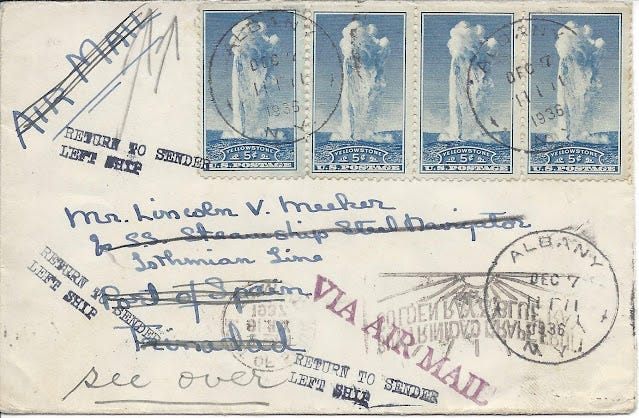 AIR MAIL
RETURN TO SENDER
LEFT SHIP
YELLOWSTONE
5¢
U.S. POSTAGE
YELLOWSTONE
5¢
U.S. POSTAGE
YELLOWSTONE
5¢
U.S. POSTAGE
YELLOWSTONE
5¢
U.S. POSTAGE
ALBANY
DEC 7
1936
N.Y.
ALBANY
DEC 7
1936
Mr. Lincoln V. Meeker
c/o SS. Steamship Steel Navigator
Isthmian Line
Port of Spain
Trinidad
ALBANY
DEC 7
1936
N.Y.
RETURN TO SENDER
LEFT SHIP
VIA AIR MAIL
TRINIDAD GRAPEFRUIT
see over
RETURN TO SENDER
LEFT SHIP